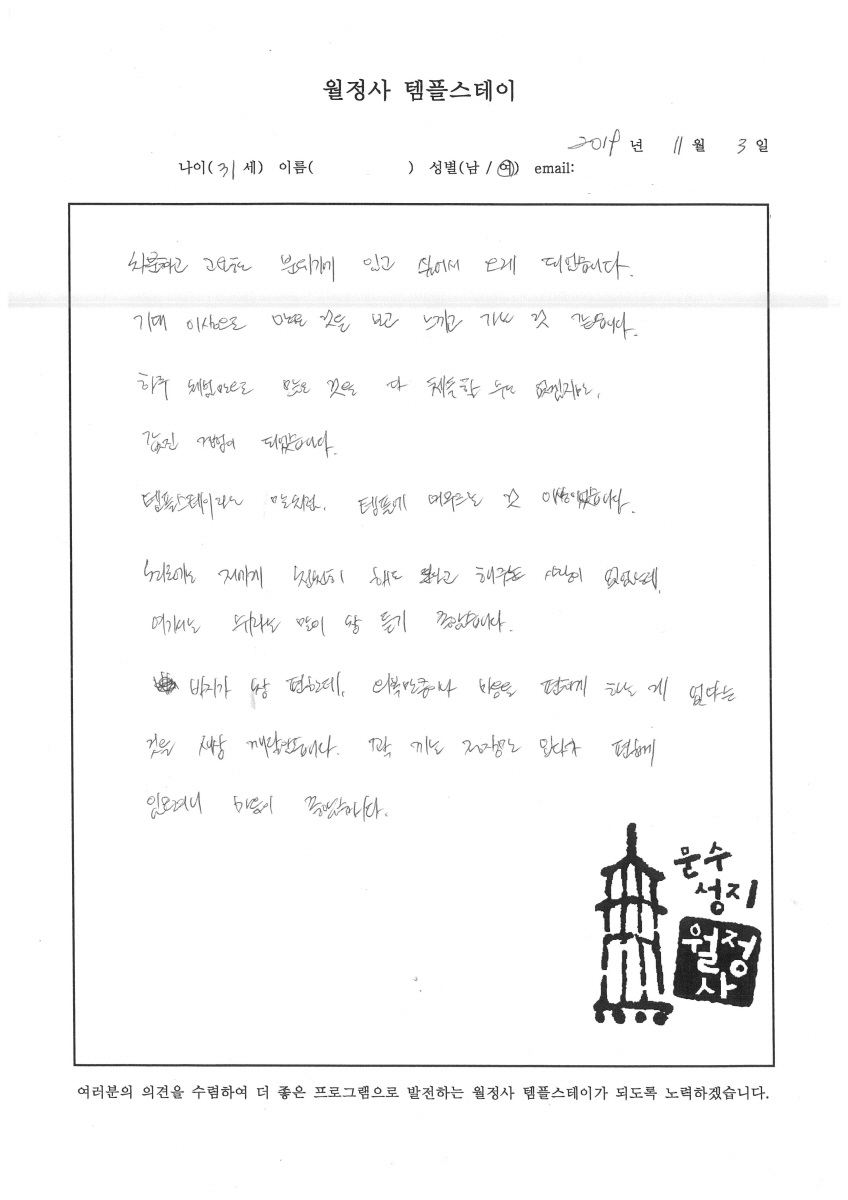 월정사 템플스테이
2019 년 11 월 3 일
나이( 31 세) 이름( ) 성별(남 / 여) email:
차분하고 고요한 분위기에 있고 싶어서 오게 되었습니다.
기대 이상으로 많은 것을 보고 느끼고 가는 것 같습니다.
하루 체험만으로 많은 것을 다 체득할 수는 없겠지만,
값진 경험이 되었습니다.
템플스테이라는 말처럼, 템플에 머무르는 것 이었습니다.
저에게 천천히 해도 된다고 해주는 사람이 없었는데,
여기서는 말이 참 듣기 좋았습니다.
바지가 참 편한데, 의복만큼이나 마음을 편하게 하는 게 없다는
것을 새삼 깨달았습니다. 꽉 끼는 정장만 입다가 편하게
입으려니 마음이 좋았습니다.
문수
성지
월정
사
여러분의 의견을 수렴하여 더 좋은 프로그램으로 발전하는 월정사 템플스테이가 되도록 노력하겠습니다.